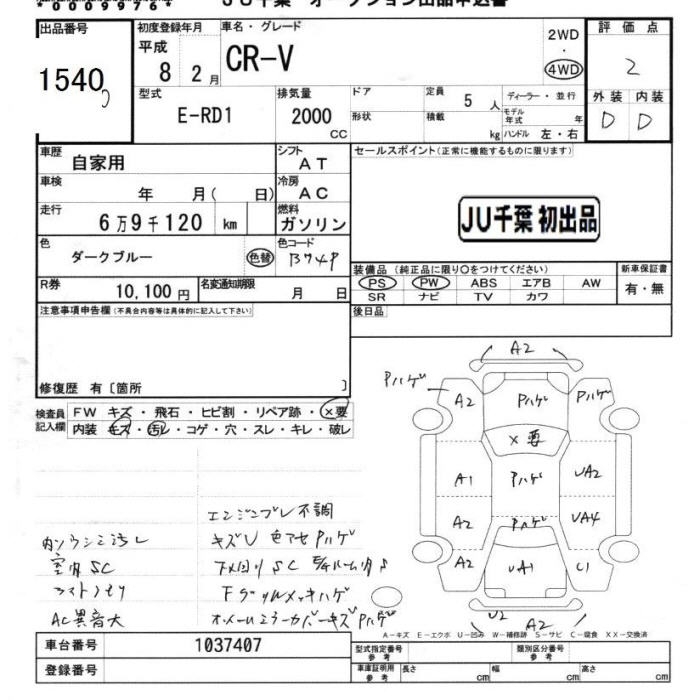 JU千葉 オークション出品申込書
出品番号
1540
初度登録年月
平成
8 2月
車名・グレード
CR-V
2WD
・
4WD
評価点
2
外装 内装
D D
型式
E-RD1
排気量
2000
CC
ドア
形状
定員 5人
積載 kg
ディーラー・並行
モデル年式 年
ハンドル 左・右
車歴
自家用
シフト
AT
車検
年 月( 日)
冷房
AC
走行
6万9千120 km
燃料
ガソリン
色
ダークブルー
色替
色コード
B74P
R券
10,100円
名変通知期限
月 日
セールスポイント(正常に機能するものに限ります)
JU千葉 初出品
装備品(純正品に限り○をつけてください)
PS PW ABS エアB AW
SR ナビ TV カワ
新車保証書
有・無
後日品
注意事項申告欄(不具合内容等は具体的に記入して下さい)
修復歴 有〔箇所 〕
検査員
記入欄
FW キズ・飛石・ヒビ割・リペア跡・×要
内装 キズ・汚レ・コゲ・穴・スレ・キレ・破レ
A2
Pハゲ
A2 Pハゲ Pハゲ
×要
A1 Pハゲ UA2
A2 Pハゲ UA4
A2 UA1 C1
U2 A2
エンジンブレ不調
キズU 色アセ Pハゲ
室内SC
AC異音大
A-キズ E-エクボ U-凹み W-補修跡 S-サビ C-腐食 XX-交換済
車台番号
1037407
登録番号
型式指定番号
参考
類別区分番号
参考
車庫証明用
参考
長さ cm 幅 cm 高さ cm